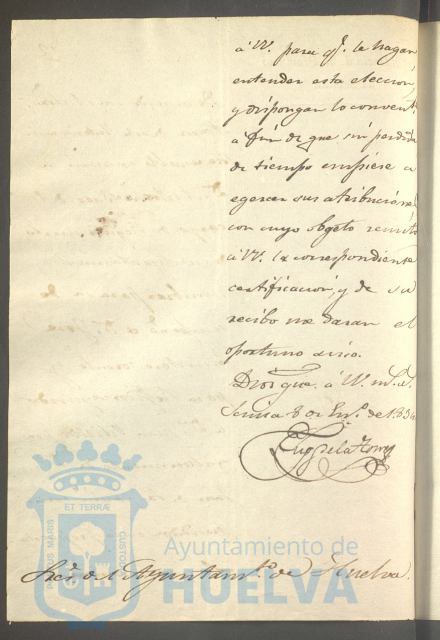 á VV. para qe. le hagan
entender esta eleccion,
y dispongan lo convente.
á fin de que sin perdida
de tiempo empiese a
egercer sus atribuciones
con cuyo obgeto remito
á VV. la correspondiente
certificacion, y de su
recibo me daran el
oportuno aviso.
Dios gue. á VV. ms. as.
Sevilla 8 de Eno. de 1834
de la Torre
PORTUS MARIS
ET TERRÆ
CUSTODIA
Ayuntamiento de
HUELVA
Sres. del Ayuntamto. de Huelva.